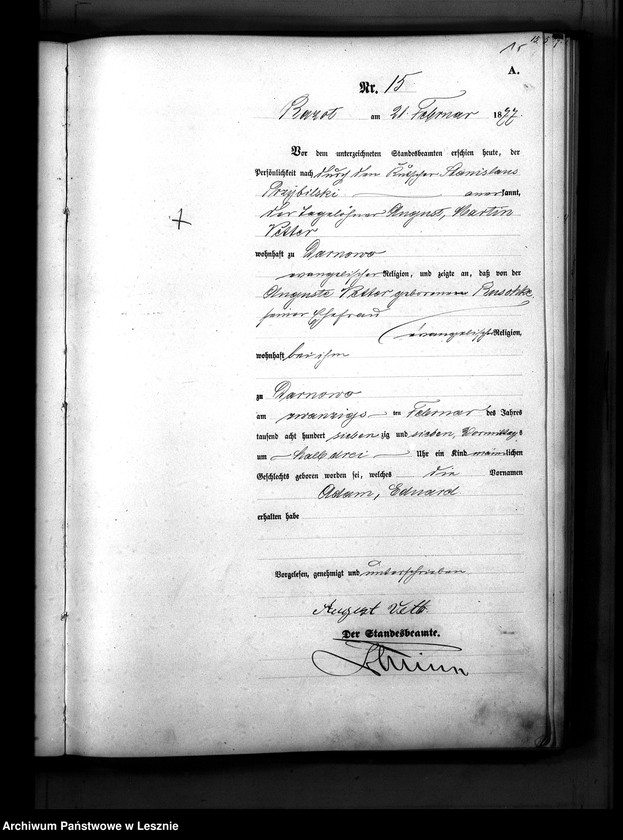 15
A.
Nr. 15
Razot am 21. Februar 1877.
Vor dem unterzeichneten Standesbeamten erschien heute, der
Persönlichkeit nach durch den Kutscher Stanislaus
Przybilski anerkannt,
der Tagelöhner August, Martin
Vetter
wohnhaft zu Darnowo
evangelischer Religion, und zeigte an, daß von der
Auguste Vetter geborenen Ruschke,
seiner Ehefrau
evangelischer Religion,
wohnhaft bei ihm
zu Darnowo
am zwanzigs ten Februar des Jahres
tausend acht hundert sieben zig und sieben, Vormittags
um halb drei Uhr ein Kind männlichen
Geschlechts geboren worden sei, welches die Vornamen
Adam, Eduard
erhalten habe
Vorgelesen, genehmigt und unterschrieben
August Vett
Der Standesbeamte.
Archiwum Państwowe w Lesznie